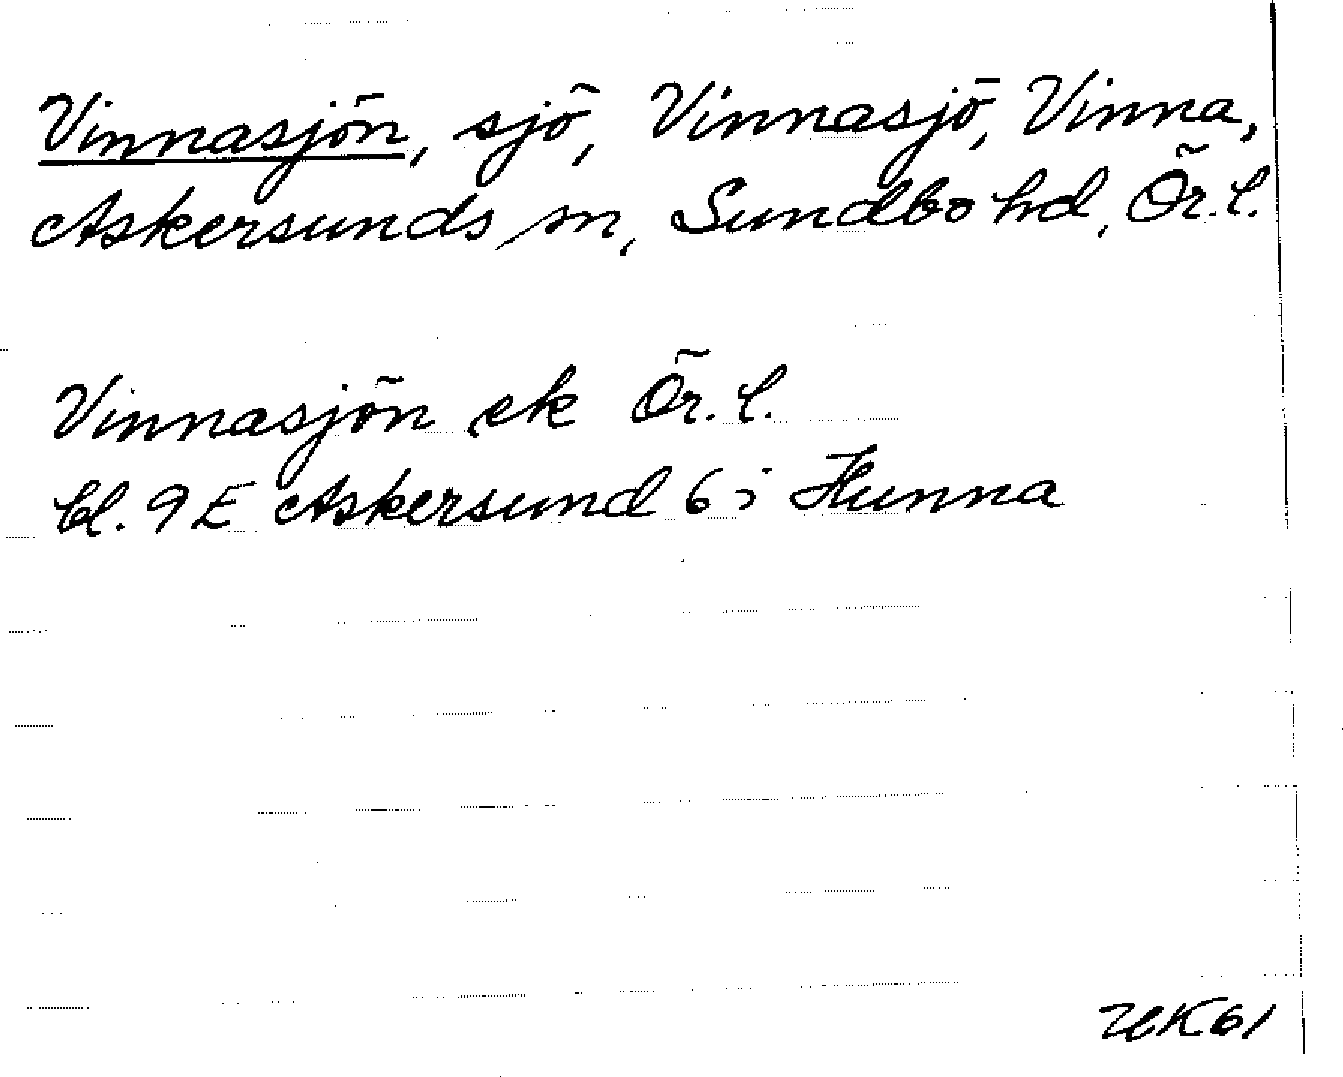 Vinnasjön, sjö, Vinnasjö, Vinna,
Askersunds sn, Sundbo hd, Ör. l.
Vinnasjön ek Ör. l.
bl. 9 E Askersund 6 i Hunna
UK 61